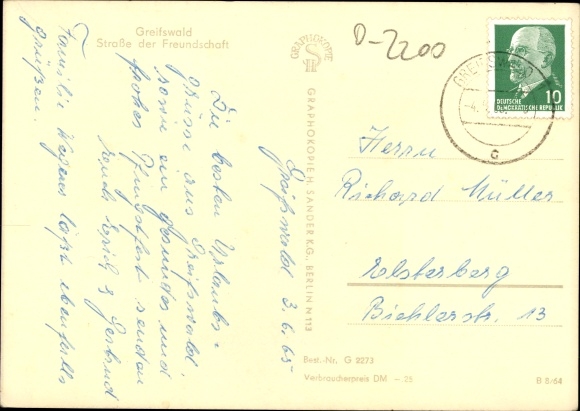 Greifswald
Straße der Freundschaft
D-2200
GRAPHOKOPIE
GRAPHOKOPIE H. SANDER K.G., BERLIN N 113
DEUTSCHE
DEMOKRATISCHE REPUBLIK
10
GREIFSWALD
G
Greifswald 3.6.65
Die besten Urlaubs-
grüsse aus Greifswald
sowie ein gesundes und
frohes Pfingstfest senden
Erich & Gertrud
Familie Wagens läßt ebenfalls
grüßen.
Herrn
Richard Müller
Elsterberg
Biehlerstr. 13
Best.-Nr. G 9273
Verbraucherpreis DM -.25
B 8/64